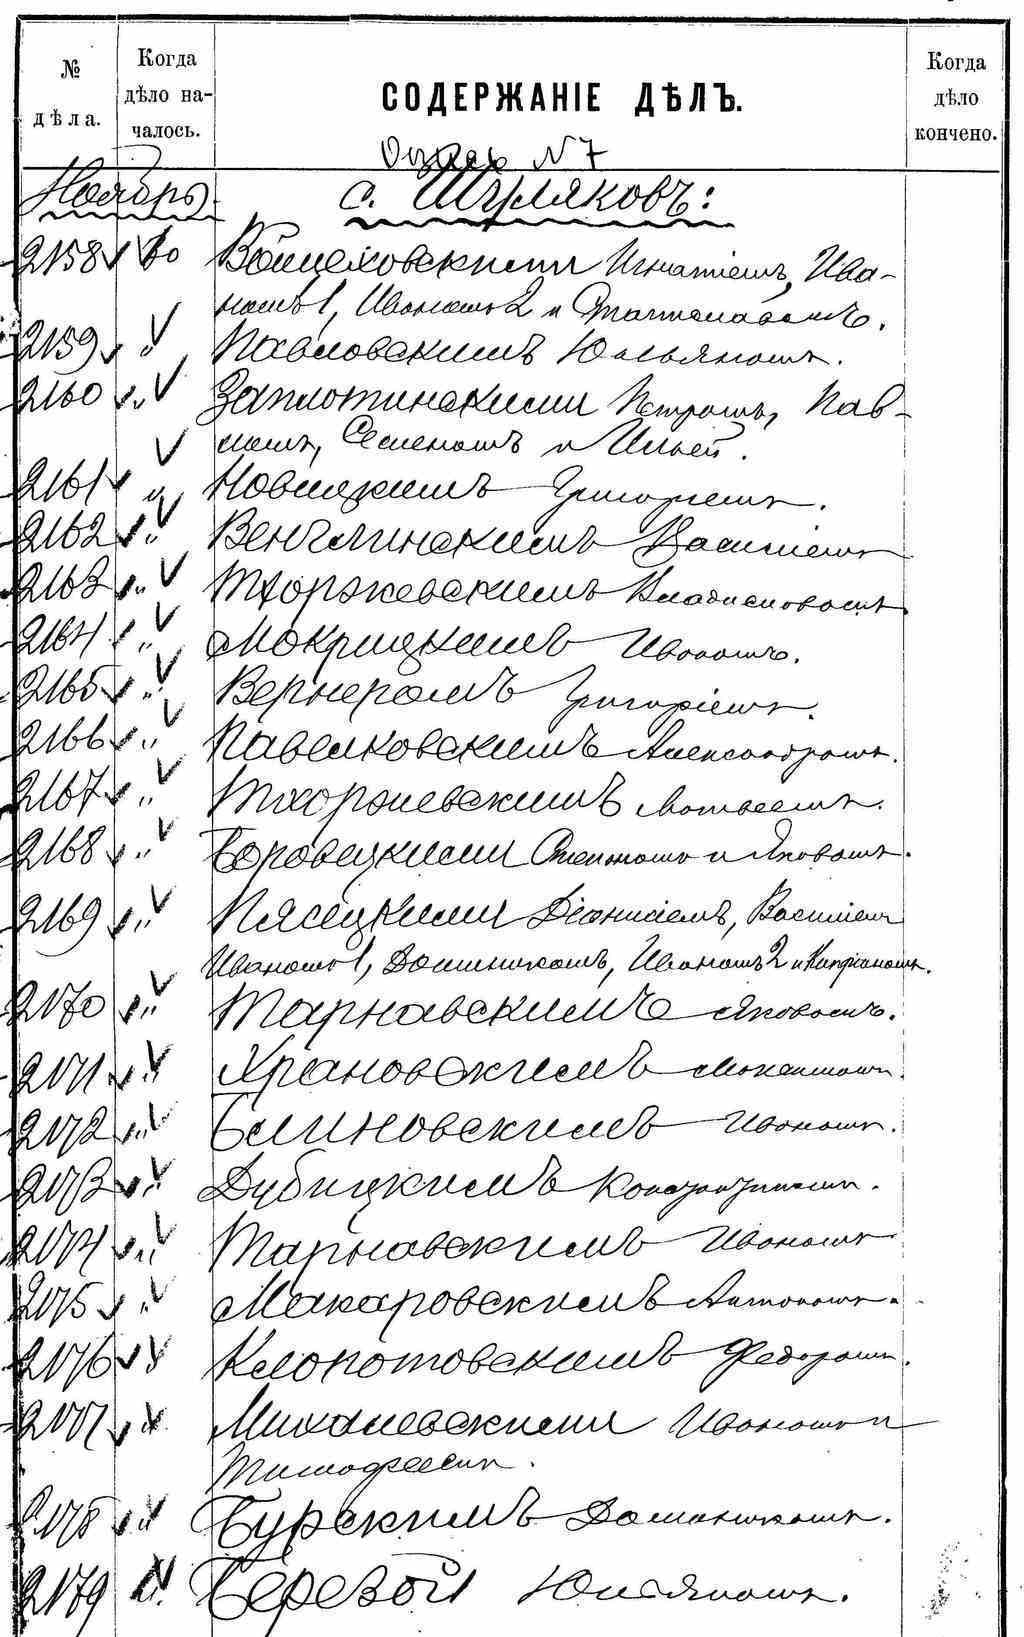 № дѣла.
Когда дѣло на-чалось.
СОДЕРЖАНІЕ ДѢЛЪ.
Когда дѣло кончено.
№ 7
Ноябрь
с. Шуляковъ:
2158 30 Войцеховскими Игнатіемъ, Ива-
номъ 1, Иваномъ 2 и Станиславомъ.
2159 " Павловскимъ Юльяномъ.
2160 " Заплотинскими Петромъ, Пав-
ломъ, Семеномъ и Ильей.
2161 " Новицкимъ Григоріемъ.
2162 " Венглинскимъ Василіемъ
2163 " Тхоржевскимъ Владиславомъ
2164 " Мокрицкимъ Иваномъ.
2165 " Вернеромъ Григоріемъ.
2166 " Павелковскимъ Александромъ.
2167 " Тхоржевскимъ Матвеемъ.
2168 " Боровецкими Степаномъ и Яковомъ.
2169 " Пясецкими Діонисіемъ, Василіемъ
Иваномъ 1, Доминикомъ, Иваномъ 2 и Кипріаномъ.
2170 " Тарнавскимъ Яковомъ.
2171 " Храновскимъ
2172 " Блиновскимъ Иваномъ.
2173 " Дубицкимъ Константиномъ.
2174 " Тарнавскимъ Иваномъ
2175 " Макаровскимъ Антономъ.
2176 " Клопотовскимъ Федоромъ.
2177 " Михалевскими Иваномъ и
Тимофеемъ.
2178 " Бурскимъ Доминикомъ.
2179 " Березой Юльяномъ.